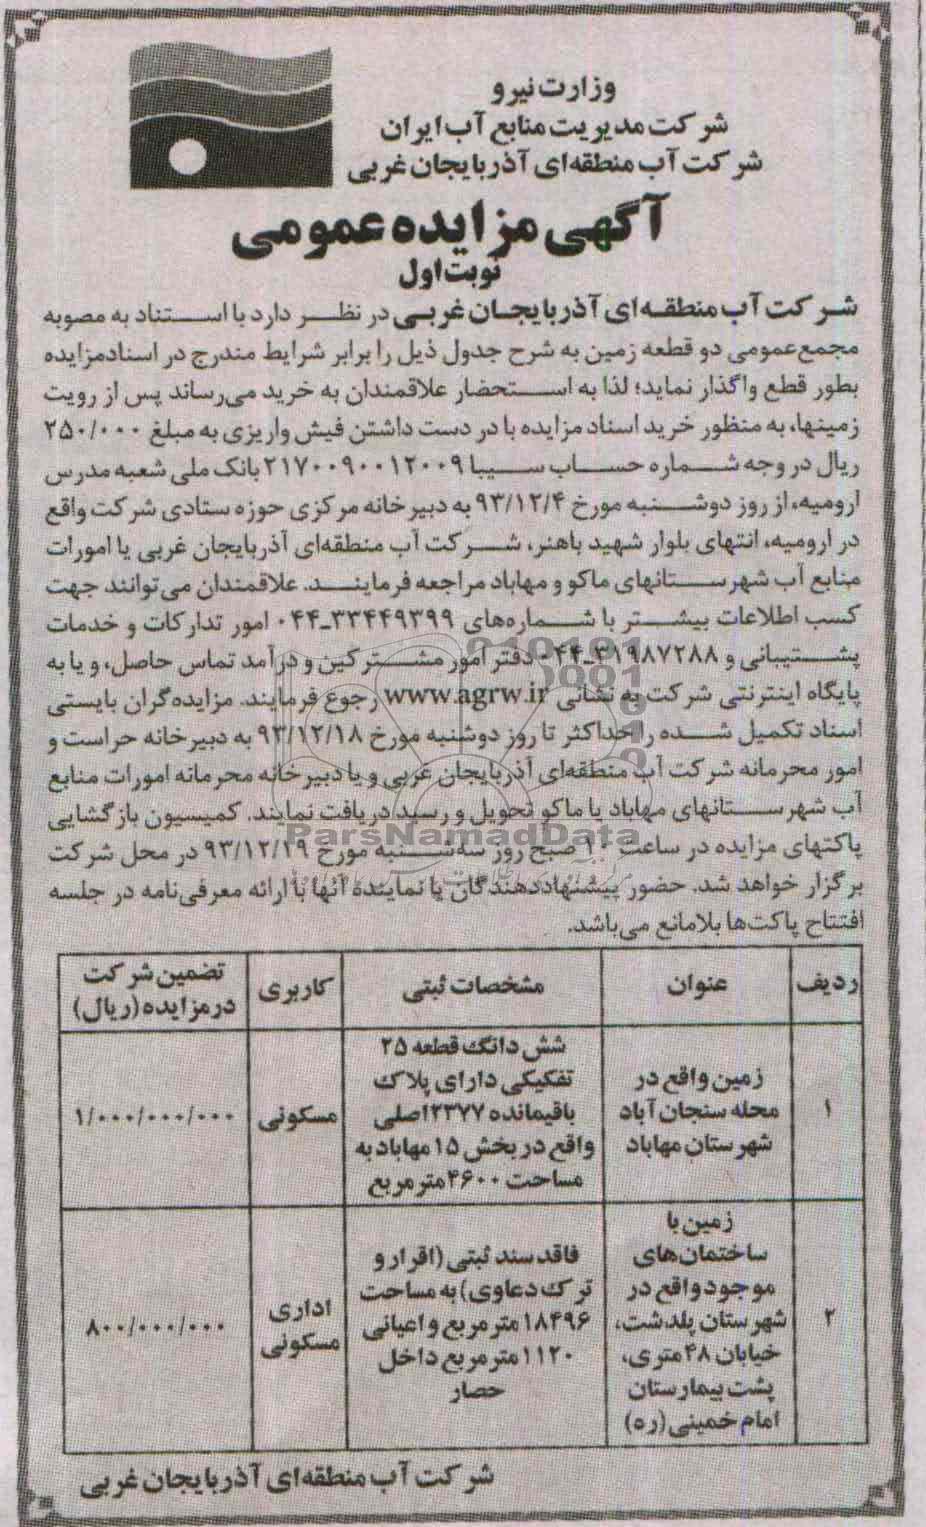 وزارت نیرو
شرکت مدیریت منابع آب ایران
شرکت آب منطقه‌ای آذربایجان غربی
آگهی مزایده عمومی
نوبت اول
شرکت آب منطقه‌ای آذربایجان غربی در نظر دارد با استناد به مصوبه
مجمع عمومی دو قطعه زمین به شرح جدول ذیل را برابر شرایط مندرج در اسناد مزایده
بطور قطع واگذار نماید؛ لذا به استحضار علاقمندان به خرید می‌رساند پس از رویت
زمینها، به منظور خرید اسناد مزایده با در دست داشتن فیش واریزی به مبلغ ۲۵۰/۰۰۰
ریال در وجه شماره حساب سیبا ۲۱۷۰۰۹۰۰۱۲۰۰۹ بانک ملی شعبه مدرس
ارومیه، از روز دوشنبه مورخ ۹۳/۱۲/۴ به دبیرخانه مرکزی حوزه ستادی شرکت واقع
در ارومیه، انتهای بلوار شهید باهنر، شرکت آب منطقه‌ای آذربایجان غربی یا امورات
منابع آب شهرستانهای ماکو و مهاباد مراجعه فرمایند. علاقمندان می‌توانند جهت
کسب اطلاعات بیشتر با شماره‌های ۳۳۴۴۹۳۹۹-۰۴۴ امور تدارکات و خدمات
پشتیبانی و ۳۱۹۸۷۲۸۸-۰۴۴ دفتر امور مشترکین و درآمد تماس حاصل، و یا به
پایگاه اینترنتی شرکت به نشانی www.agrw.ir رجوع فرمایند. مزایده‌گران بایستی
اسناد تکمیل شده را حداکثر تا روز دوشنبه مورخ ۹۳/۱۲/۱۸ به دبیرخانه حراست و
امور محرمانه شرکت آب منطقه‌ای آذربایجان غربی و یا دبیرخانه محرمانه امورات منابع
آب شهرستانهای مهاباد یا ماکو تحویل و رسید دریافت نمایند. کمیسیون بازگشایی
پاکتهای مزایده در ساعت ۱۰ صبح روز سه‌شنبه مورخ ۹۳/۱۲/۱۹ در محل شرکت
برگزار خواهد شد. حضور پیشنهاددهندگان یا نماینده آنها با ارائه معرفی‌نامه در جلسه
افتتاح پاکت‌ها بلامانع می‌باشد.
ParsNamadData
ردیف عنوان مشخصات ثبتی کاربری تضمین شرکت
در مزایده (ریال)
۱
زمین واقع در
محله سنجان آباد
شهرستان مهاباد
شش دانگ قطعه ۲۵
تفکیکی دارای پلاک
باقیمانده ۲۳۷۷ اصلی
واقع در بخش ۱۵ مهاباد به
مساحت ۴۶۰۰ متر مربع
مسکونی
۱/۰۰۰/۰۰۰/۰۰۰
۲
زمین با
ساختمان‌های
موجود واقع در
شهرستان پلدشت،
خیابان ۴۸ متری،
پشت بیمارستان
امام خمینی (ره)
فاقد سند ثبتی (اقرار و
ترک دعاوی) به مساحت
۱۸۴۹۶ متر مربع و اعیانی
۱۱۲۰ متر مربع داخل
حصار
اداری
مسکونی
۸۰۰/۰۰۰/۰۰۰
شرکت آب منطقه‌ای آذربایجان غربی